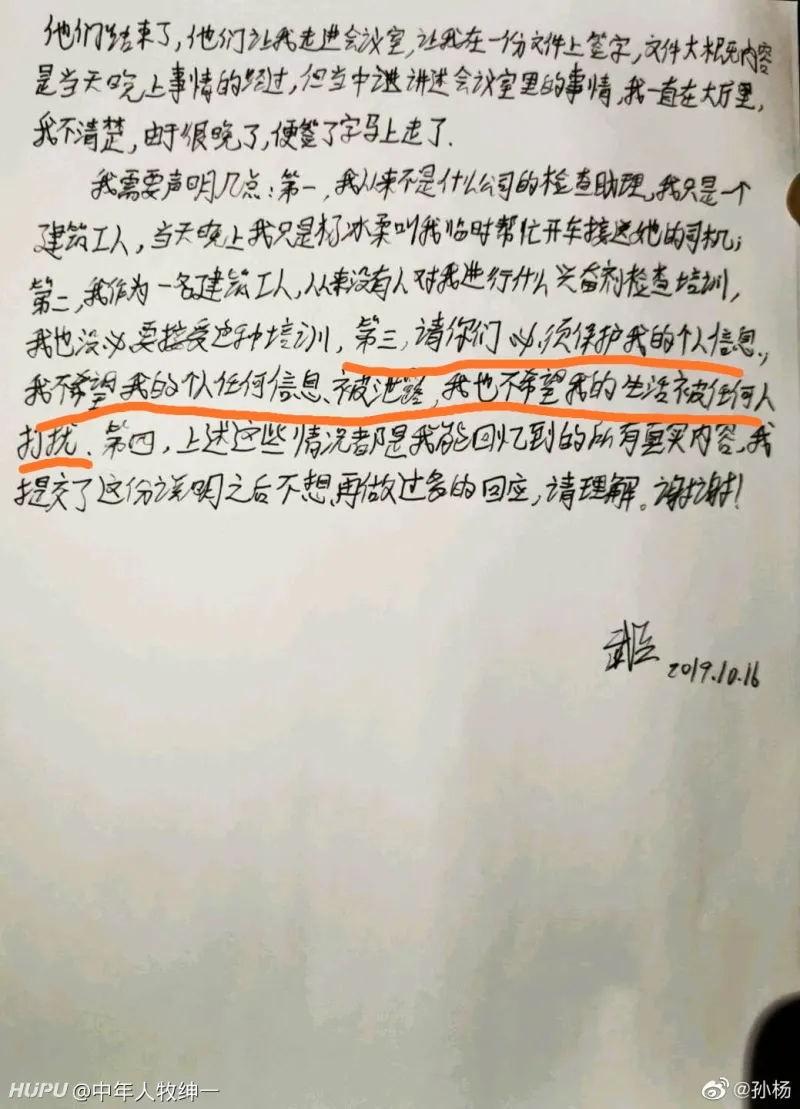 他们结束了，他们让我走进会议室，让我在一份文件上签字，文件大概内容
是当天晚上事情的经过，但当中讲述会议室里的事情，我一直在大厅里，
我不清楚，由于很晚了，便签了字马上走了．
我需要声明几点：第一，我从来不是什么公司的检查助理，我只是一个
建筑工人，当天晚上我只是杨冰柔叫我临时帮忙开车接送她的司机；
第二，我作为一名建筑工人，从来没有人对我进行什么兴奋剂检查培训，
我也没必要接受这种培训，第三，请你们必须保护我的个人信息，
我不希望我的个人任何信息被泄露，我也不希望我的生活被任何人
打扰．第四，上述这些情况都是我能回忆到的所有真实内容，我
提交了这份说明之后不想再做过多的回应，请理解。谢谢！
2019.10.16
HUPU @中年人牧绅一
@孙杨